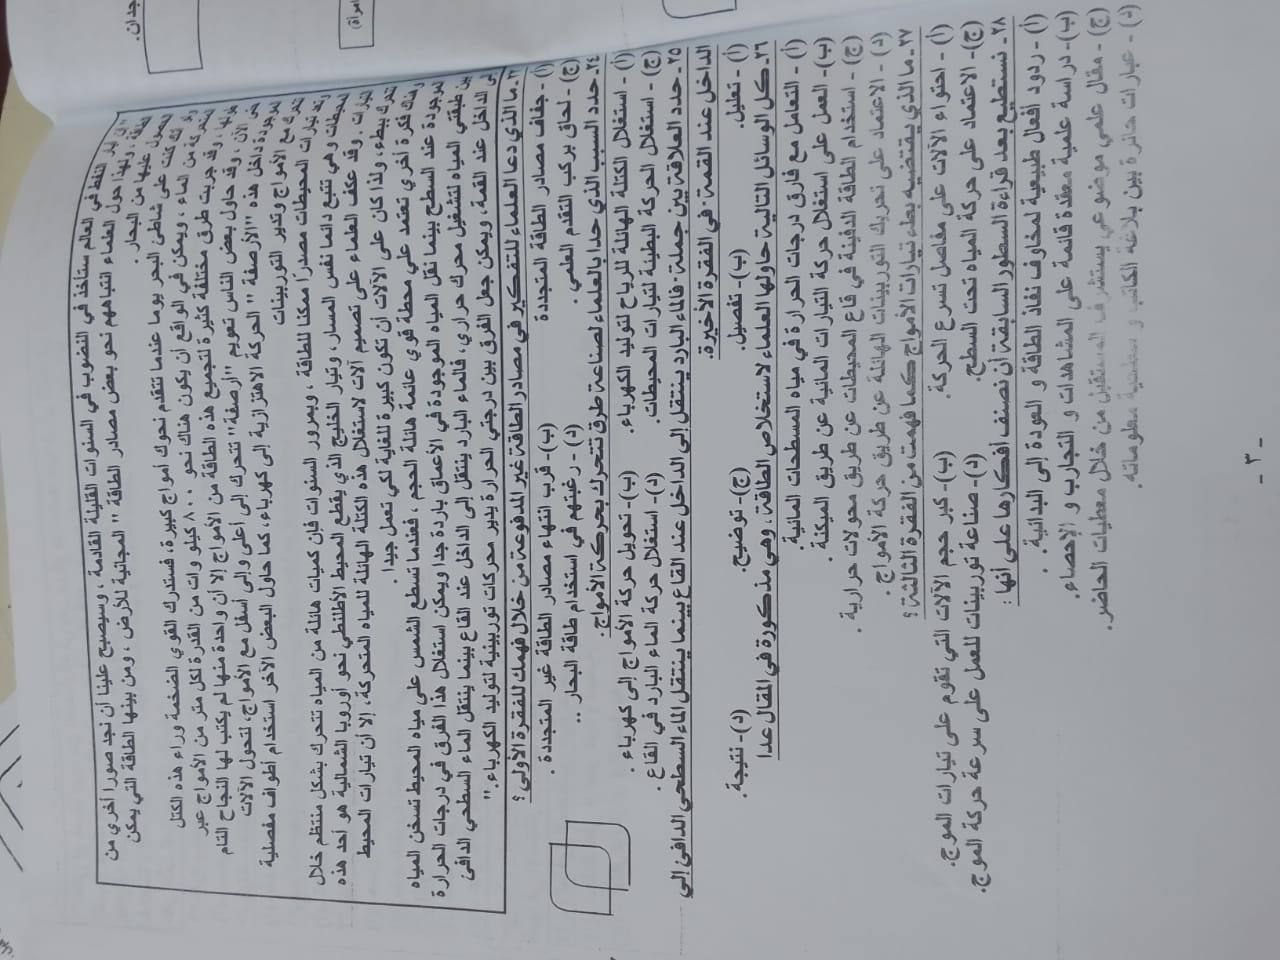 النفط في العالم ستأخذ في النضوب في السنوات القليلة القادمة، وسيصبح علينا أن نجد صورا أخرى من
الطاقة، ولهذا حول العلماء انتباههم نحو بعض مصادر الطاقة "المجانية للأرض، ومن بينها الطاقة التي يمكن
الحصول عليها من البحار.
لو أنك كنت على شاطئ البحر يوما عندما تتقدم نحوك أمواج كبيرة، فستدرك القوي الضخمة وراء هذه الكتل
المتحركة من الماء، ويمكن في الواقع أن يكون هناك نحو ٨٠٠ كيلو وات من القدرة لكل متر من الأمواج عبر
وقد جربت طرق مختلفة كثيرة لتجميع هذه الطاقة من الأمواج إلا أن واحدة منها لم يكتب لها النجاح التام
حتى الآن، وقد حاول بعض الناس تعويم "أرصفة" تتحرك إلى أعلى وإلى أسفل مع الأمواج، لتحول الآلات
الموجودة داخل هذه "الأرصفة" الحركة الاهتزازية إلى كهرباء، كما حاول البعض الآخر استخدام أطواف مفصلية
تتحرك مع الأمواج وتدير التوربينات
وتعد تيارات المحيطات مصدرا ممكنا للطاقة، وبمرور السنوات فإن كميات هائلة من المياه تتحرك بشكل منتظم خلال
المحيطات وهي تتبع دائما نفس المسار، وتيار الخليج الذي يقطع المحيط الأطلنطي نحو أوروبا الشمالية هو أحد هذه
التيارات. وقد عكف العلماء على تصميم آلات لاستغلال هذه الكتلة الهائلة للمياه المتحركة، إلا أن تيارات المحيط
تتحرك ببطء، ولذا كان على الآلات أن تكون كبيرة للغاية لكي تعمل جيدا.
وهناك فكرة أخرى تعتمد على محطة قوي عائمة هائلة الحجم، فعندما تسطع الشمس على مياه المحيط تسخن المياه
الموجودة عند السطح بينما تظل المياه الموجودة في الأعماق باردة جدا ويمكن استغلال هذا الفرق في درجات الحرارة
بين طبقتي المياه لتشغيل محرك حراري، فالماء البارد ينتقل إلى الداخل عند القاع بينما ينتقل الماء السطحي الدافئ
إلى الداخل عند القمة، ويمكن جعل الفرق بين درجتي الحرارة يدير محركات توربينية لتوليد الكهرباء."
٢٣- ما الذي دعا العلماء للتفكير في مصادر الطاقة غير المدفوعة من خلال فهمك للفقرة الأولى؟
(أ)- جفاف مصادر الطاقة المتجددة (ب)- قرب انتهاء مصادر الطاقة غير المتجددة.
(ج)- لحاق بركب التقدم العلمي. (د)- رغبتهم في استخدام طاقة البحار..
٢٤- حدد السبب الذي حدا بالعلماء لصناعة طرق تتحرك بحركة الأمواج.
(أ)- استغلال الكتلة الهائلة للرياح لتوليد الكهرباء. (ب)- تحويل حركة الأمواج إلى كهرباء.
(ج)- استغلال الحركة البطيئة لتيارات المحيطات. (د)- استغلال حركة الماء البارد في القاع.
٢٥- حدد العلاقة بين جملة: فالماء البارد ينتقل إلى الداخل عند القاع بينما ينتقل الماء السطحي الدافئ إلى
الداخل عند القمة. في الفقرة الأخيرة.
(أ)- تعليل. (ب)- تفصيل. (ج)- توضيح. (د)- نتيجة.
٢٦- كل الوسائل التالية حاولها العلماء لاستخلاص الطاقة، وهي مذكورة في المقال عدا
(أ)- التعامل مع فارق درجات الحرارة في مياه المسطحات المائية.
(ب)- العمل على استغلال حركة التيارات المائية عن طريق الميكنة.
(ج)- استخدام الطاقة الدفينة في قاع المحيطات عن طريق محولات حرارية.
(د)- الاعتماد على تحريك التوربينات الهائلة عن طريق حركة الأمواج.
٢٧- ما الذي يقتضيه بطء تيارات الأمواج كما فهمت من الفقرة الثالثة؟
(أ)- احتواء الآلات على مفاصل تسرع الحركة. (ب)- كبر حجم الآلات التي تقوم على تيارات الموج.
(ج)- الاعتماد على حركة المياه تحت السطح. (د)- صناعة توربينات للعمل على سرعة حركة الموج.
٢٨- نستطيع بعد قراءة السطور السابقة أن نصنف أفكارها على أنها:
(أ)- ردود أفعال طبيعية لمخاوف نفاذ الطاقة و العودة إلى البدائية.
(ب)- دراسة علمية معقدة قائمة على المشاهدات و التجارب و الإحصاء.
(ج)- مقال علمي موضوعي يستشرف المستقبل من خلال معطيات الحاضر.
(د)- عبارات حائرة بين بلاغة الكاتب و سطحية معلوماته.
- ٣ -
امرأة)
جدان.